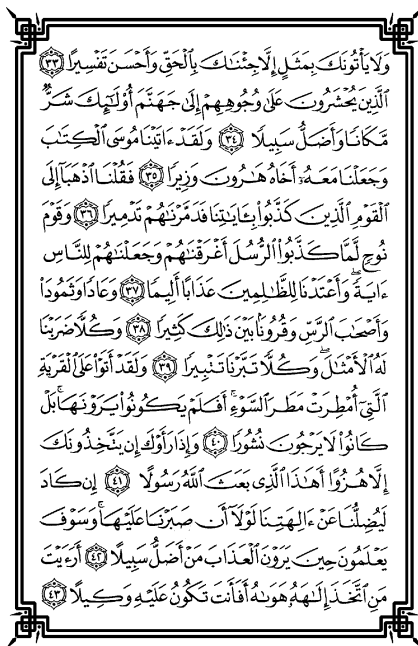 وَلَا يَأْتُونَكَ بِمَثَلٍ إِلَّا جِئْنَٰكَ بِٱلْحَقِّ وَأَحْسَنَ تَفْسِيرًا ﴿٣٣﴾
ٱلَّذِينَ يُحْشَرُونَ عَلَىٰ وُجُوهِهِمْ إِلَىٰ جَهَنَّمَ أُو۟لَٰٓئِكَ شَرٌّ
مَّكَانًا وَأَضَلُّ سَبِيلًا ﴿٣٤﴾ وَلَقَدْ ءَاتَيْنَا مُوسَى ٱلْكِتَٰبَ
وَجَعَلْنَا مَعَهُۥٓ أَخَاهُ هَٰرُونَ وَزِيرًا ﴿٣٥﴾ فَقُلْنَا ٱذْهَبَآ إِلَى
ٱلْقَوْمِ ٱلَّذِينَ كَذَّبُوا۟ بِـَٔايَٰتِنَا فَدَمَّرْنَٰهُمْ تَدْمِيرًا ﴿٣٦﴾ وَقَوْمَ
نُوحٍ لَّمَّا كَذَّبُوا۟ ٱلرُّسُلَ أَغْرَقْنَٰهُمْ وَجَعَلْنَٰهُمْ لِلنَّاسِ
ءَايَةً ۖ وَأَعْتَدْنَا لِلظَّٰلِمِينَ عَذَابًا أَلِيمًا ﴿٣٧﴾ وَعَادًا وَثَمُودَا۟
وَأَصْحَٰبَ ٱلرَّسِّ وَقُرُونًۢا بَيْنَ ذَٰلِكَ كَثِيرًا ﴿٣٨﴾ وَكُلًّا ضَرَبْنَا
لَهُ ٱلْأَمْثَٰلَ ۖ وَكُلًّا تَبَّرْنَا تَتْبِيرًا ﴿٣٩﴾ وَلَقَدْ أَتَوْا۟ عَلَى ٱلْقَرْيَةِ
ٱلَّتِىٓ أُمْطِرَتْ مَطَرَ ٱلسَّوْءِ ۚ أَفَلَمْ يَكُونُوا۟ يَرَوْنَهَا ۚ بَلْ
كَانُوا۟ لَا يَرْجُونَ نُشُورًا ﴿٤٠﴾ وَإِذَا رَأَوْكَ إِن يَتَّخِذُونَكَ
إِلَّا هُزُوًا أَهَٰذَا ٱلَّذِى بَعَثَ ٱللَّهُ رَسُولًا ﴿٤١﴾ إِن كَادَ
لَيُضِلُّنَا عَنْ ءَالِهَتِنَا لَوْلَآ أَن صَبَرْنَا عَلَيْهَا ۚ وَسَوْفَ
يَعْلَمُونَ حِينَ يَرَوْنَ ٱلْعَذَابَ مَنْ أَضَلُّ سَبِيلًا ﴿٤٢﴾ أَرَءَيْتَ
مَنِ ٱتَّخَذَ إِلَٰهَهُۥ هَوَىٰهُ أَفَأَنتَ تَكُونُ عَلَيْهِ وَكِيلًا ﴿٤٣﴾